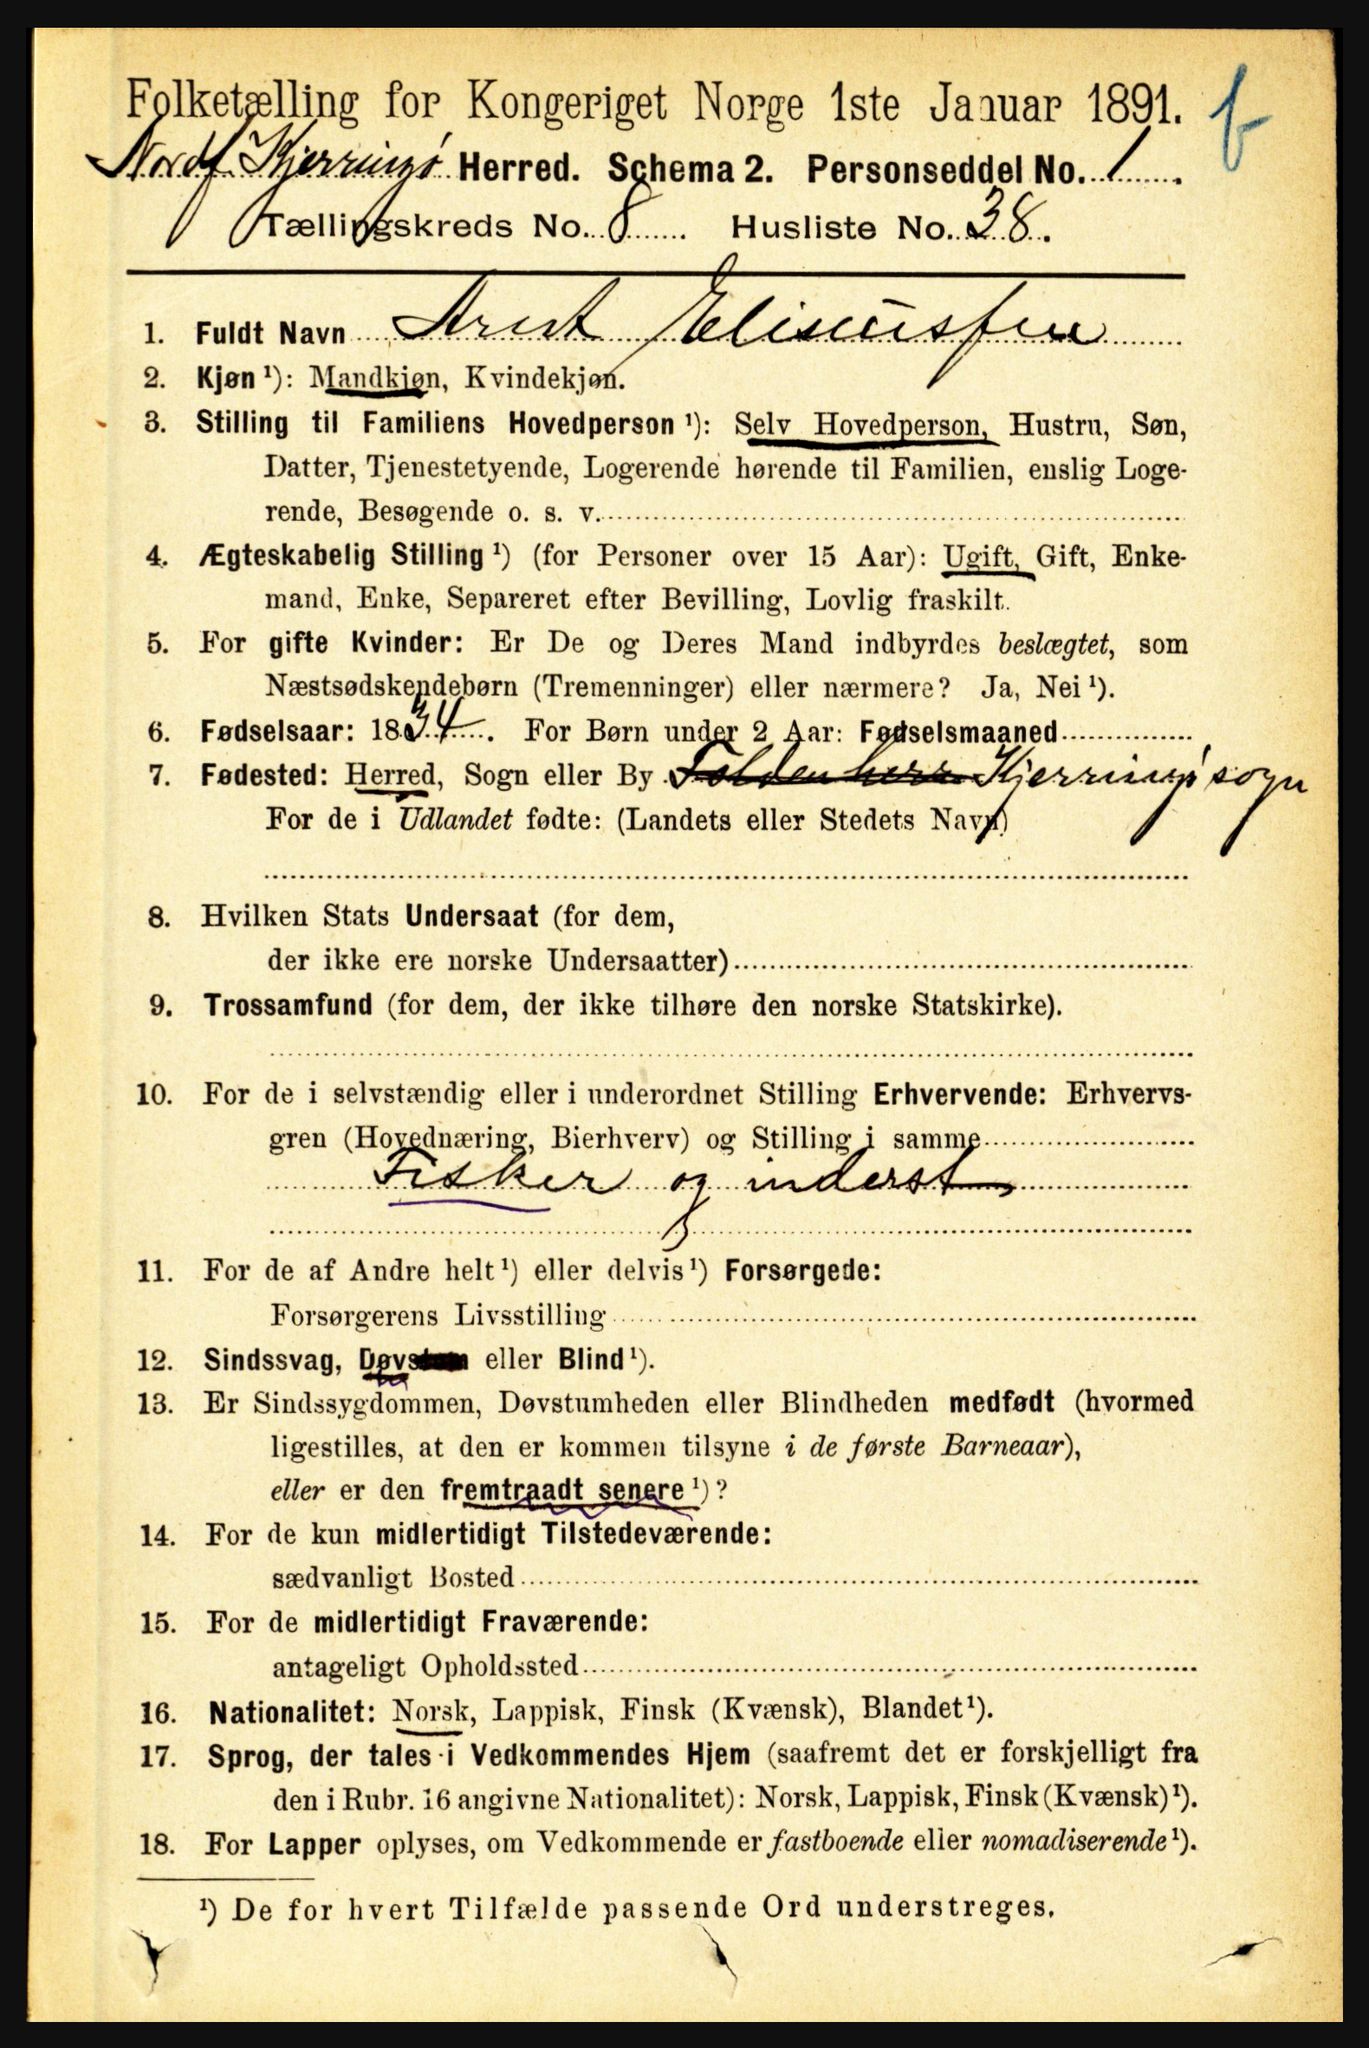 Folketælling for Kongeriget Norge 1ste Januar 1891. b
Nordf. Kjerringø Herred. Schema 2. Personseddel No. 1.
Tællingskreds No. 8. Husliste No. 38.
1. Fuldt Navn Arest Eliseusfen
2. Kjøn ¹): Mandkjøn, Kvindekjøn.
3. Stilling til Familiens Hovedperson ¹): Selv Hovedperson, Hustru, Søn,
Datter, Tjenestetyende, Logerende hørende til Familien, enslig Loge-
rende, Besøgende o. s. v.
4. Ægteskabelig Stilling ¹) (for Personer over 15 Aar): Ugift, Gift, Enke-
mand, Enke, Separeret efter Bevilling, Lovlig fraskilt.
5. For gifte Kvinder: Er De og Deres Mand indbyrdes beslægtet, som
Næstsødskendebørn (Tremenninger) eller nærmere? Ja, Nei ¹).
6. Fødselsaar: 1834. For Børn under 2 Aar: Fødselsmaaned
7. Fødested: Herred, Sogn eller By Folden herr Kjerringø sogn
For de i Udlandet fødte: (Landets eller Stedets Navn)
8. Hvilken Stats Undersaat (for dem,
der ikke ere norske Undersaatter)
9. Trossamfund (for dem, der ikke tilhøre den norske Statskirke).
10. For de i selvstændig eller i underordnet Stilling Erhvervende: Erhvervs-
gren (Hovednæring, Bierhverv) og Stilling i samme
Fisker og inderst
11. For de af Andre helt ¹) eller delvis ¹) Forsørgede:
Forsørgerens Livsstilling
12. Sindssvag, Døvstum eller Blind ¹).
13. Er Sindssygdommen, Døvstumheden eller Blindheden medfødt (hvormed
ligestilles, at den er kommen tilsyne i de første Barneaar),
eller er den fremtraadt senere ¹)?
14. For de kun midlertidigt Tilstedeværende:
sædvanligt Bosted
15. For de midlertidigt Fraværende:
antageligt Opholdssted
16. Nationalitet: Norsk, Lappisk, Finsk (Kvænsk), Blandet ¹).
17. Sprog, der tales i Vedkommendes Hjem (saafremt det er forskjelligt fra
den i Rubr. 16 angivne Nationalitet): Norsk, Lappisk, Finsk (Kvænsk) ¹).
18. For Lapper oplyses, om Vedkommende er fastboende eller nomadiserende ¹).
¹) De for hvert Tilfælde passende Ord understreges.